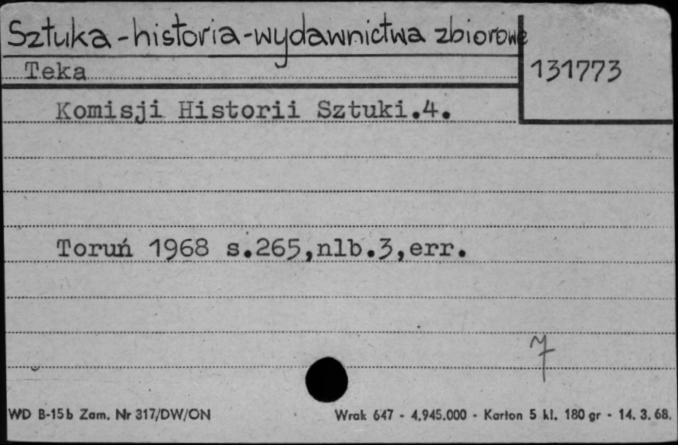 Sztuka-historia-wydawnictwa zbiorowe
Teka
131773
Komisji Historii Sztuki.4.
Toruń 1968 s.265,nlb.3,err.
7
WD B-15b Zam. Nr 317/DW/ON
Wrak 647 - 4.945.000 - Karton 5 kl. 180 gr - 14. 3. 68.